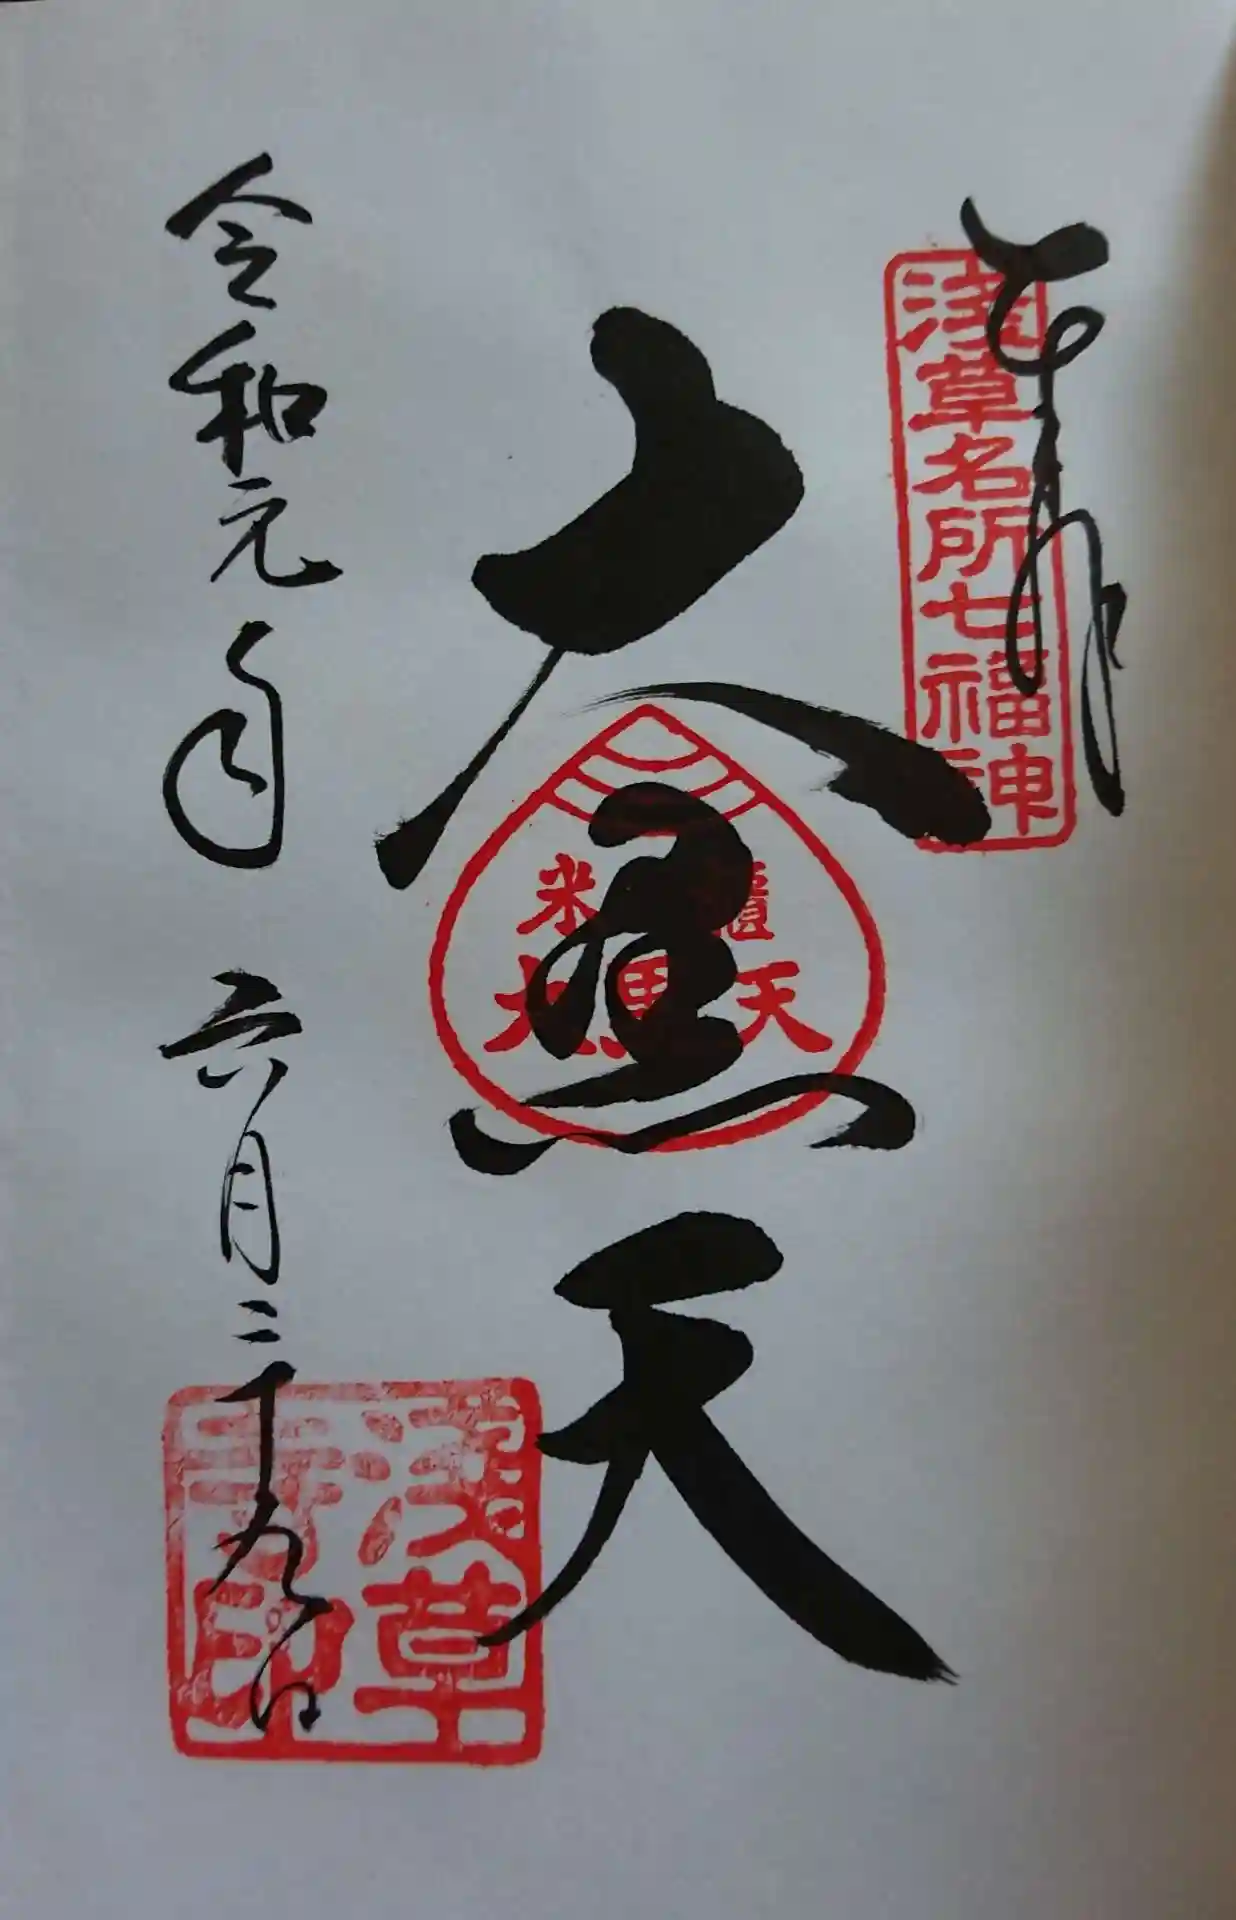 奉拝
浅草名所七福神
大黒天
米櫃
大黒天
令和元年 六月二十九日
浅草
寺印